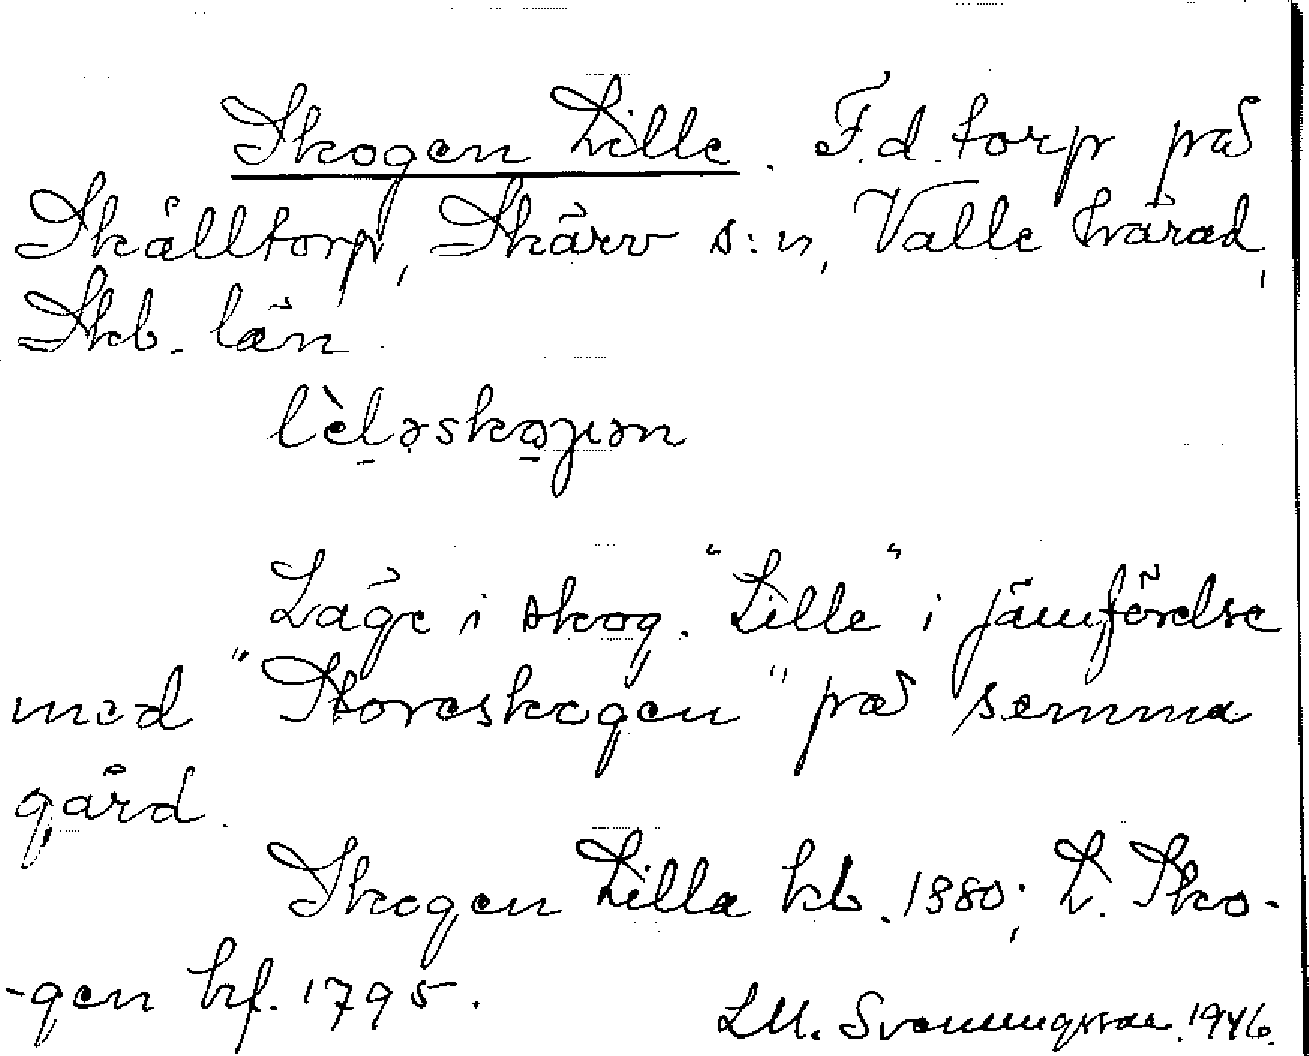 Skogen Lille. F.d. torp på
Skålltorp, Skärv s:n, Valle härad,
Skb. län.
lèləskoɡən
Läge i skog. "Lille" i jämförelse
med "Storeskogen" på samma
gård.
Skogen Lilla kb. 1880; L. Sko-
-gen hf. 1795.
LM. Svenungsson. 1946.